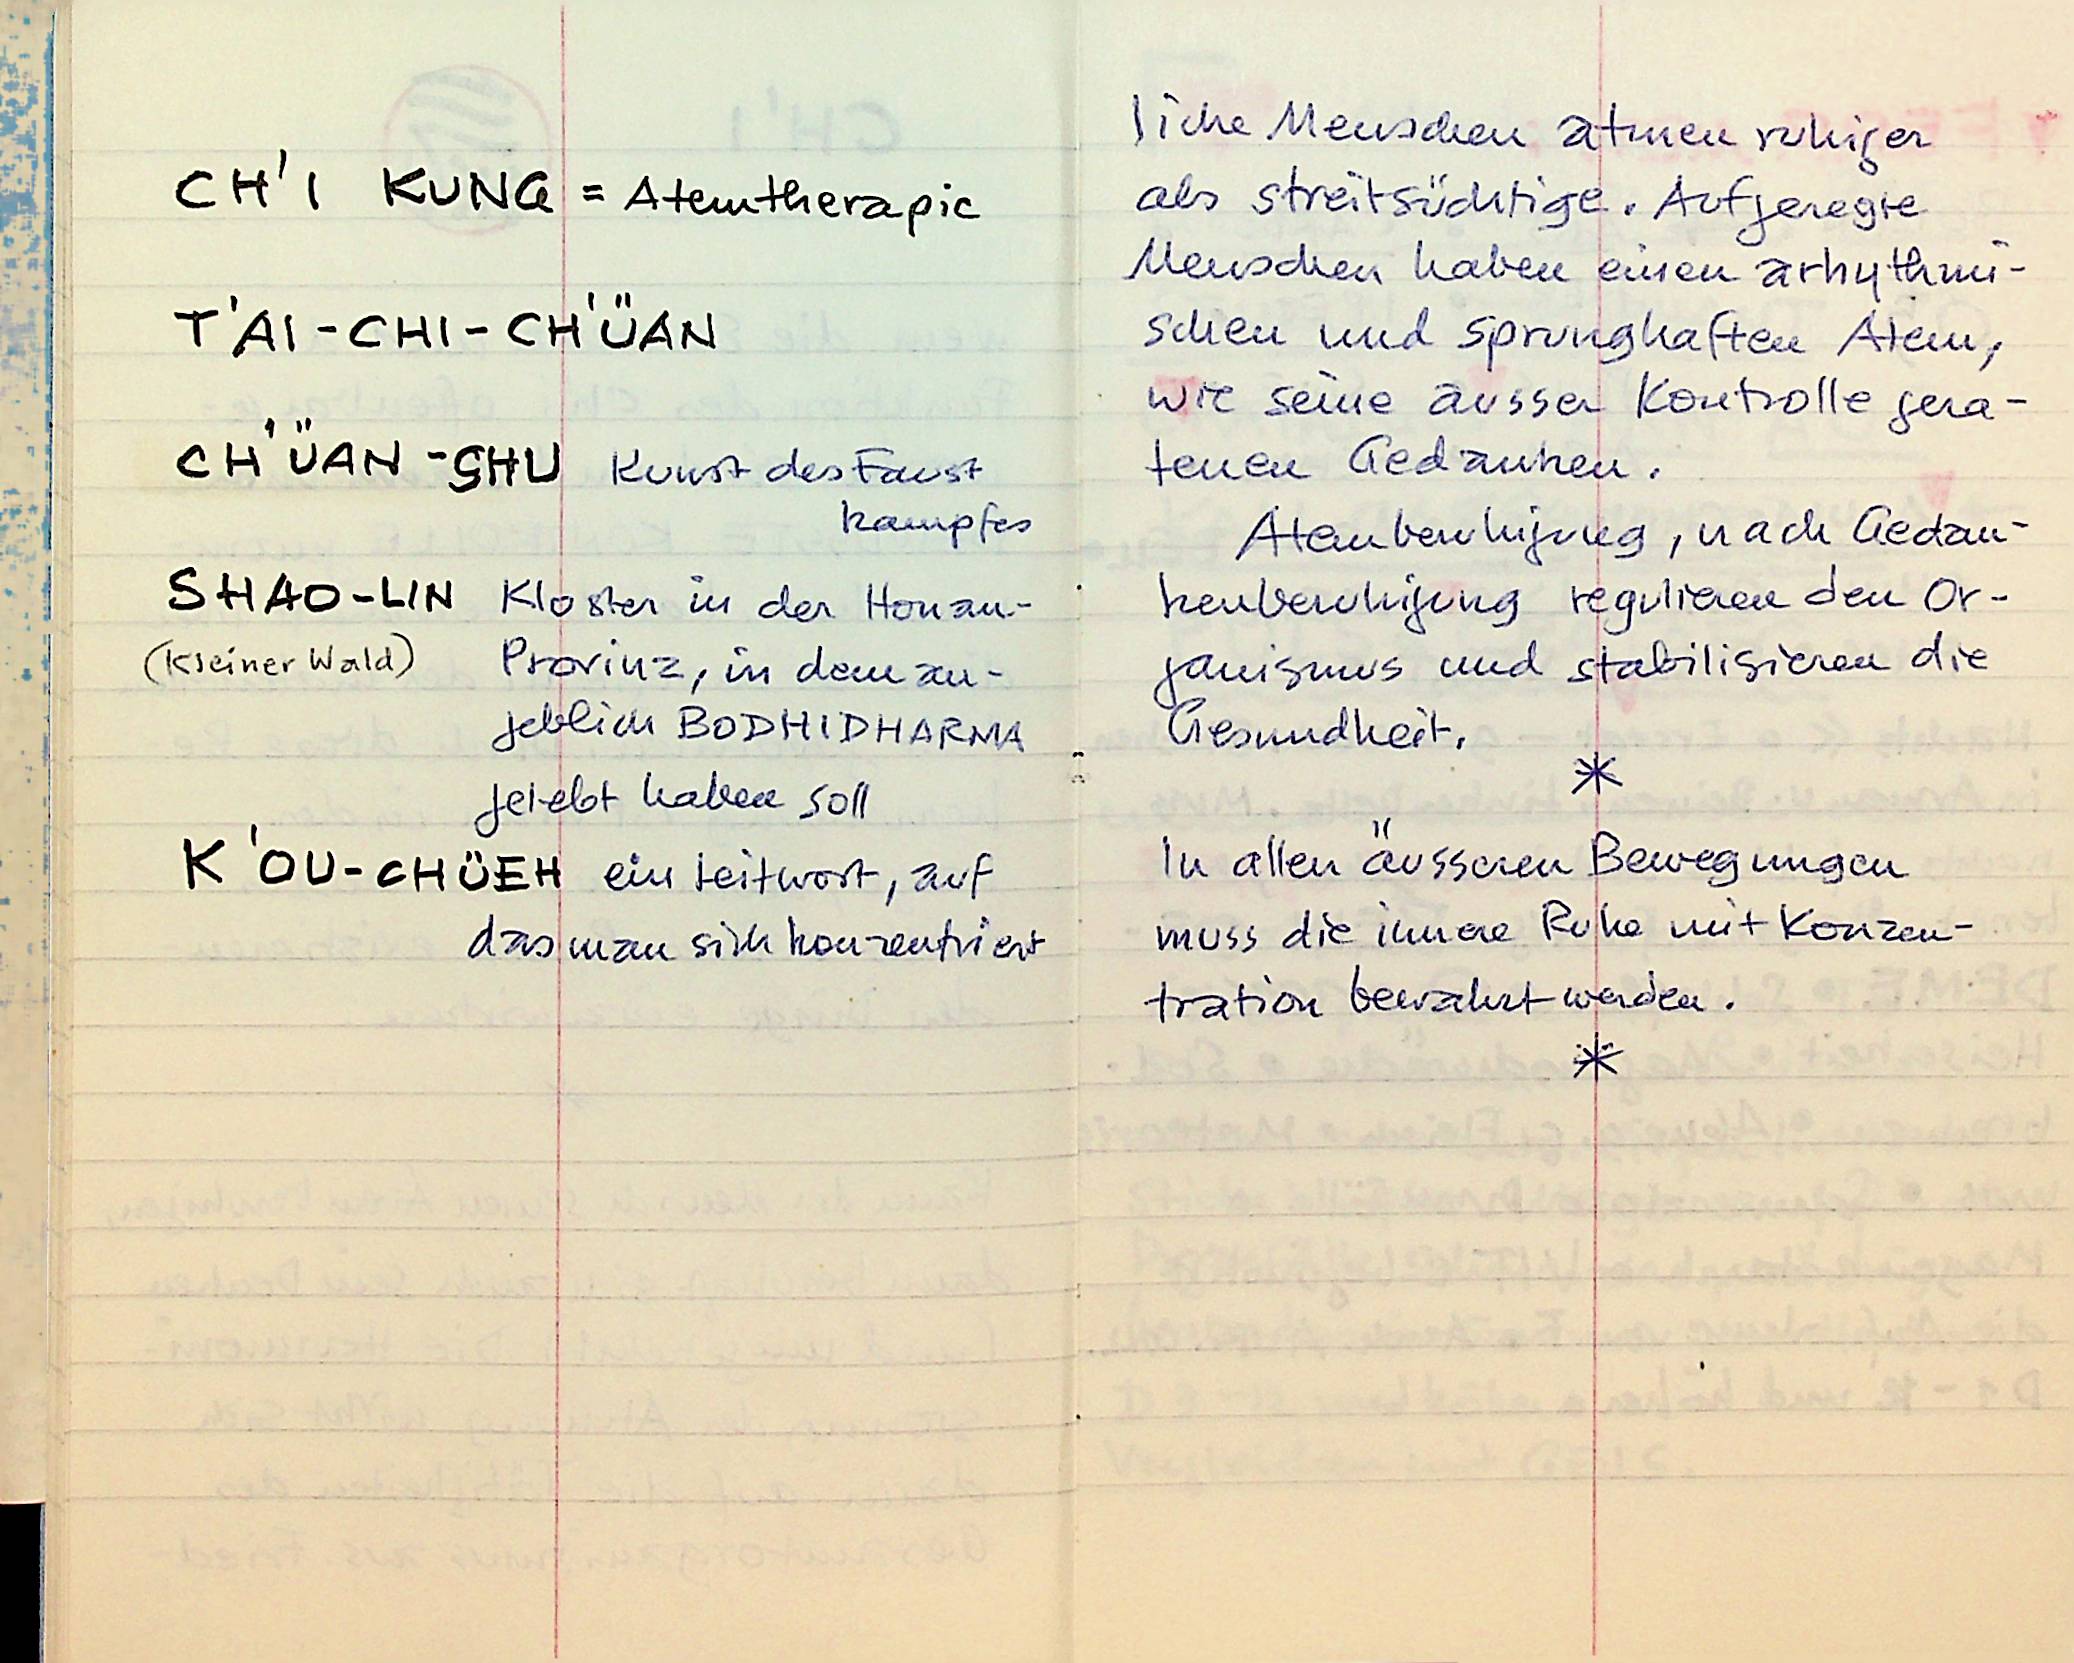 CH'I KUNG = Atemtherapie
T'AI-CHI-CH'ÜAN
CH'ÜAN-SHU Kunst des Faust
kampfes
SHAO-LIN Kloster in der Honan-
(Kleiner Wald) Provinz, in dem an-
geblich BODHIDHARMA
gelebt haben soll
K'OU-CHÜEH ein Leitwort, auf
das man sich konzentriert
liche Menschen atmen ruhiger
als streitsüchtige. Aufgeregte
Menschen haben einen arhythmi-
schen und sprunghaften Atem,
wie seine ausser Kontrolle gera-
tenen Gedanken.
Atemberuhigung, nach Gedan-
kenberuhigung regulieren den Or-
ganismus und stabilisieren die
Gesundheit.
*
In allen äusseren Bewegungen
muss die innere Ruhe mit Konzen-
tration bewahrt werden.
*